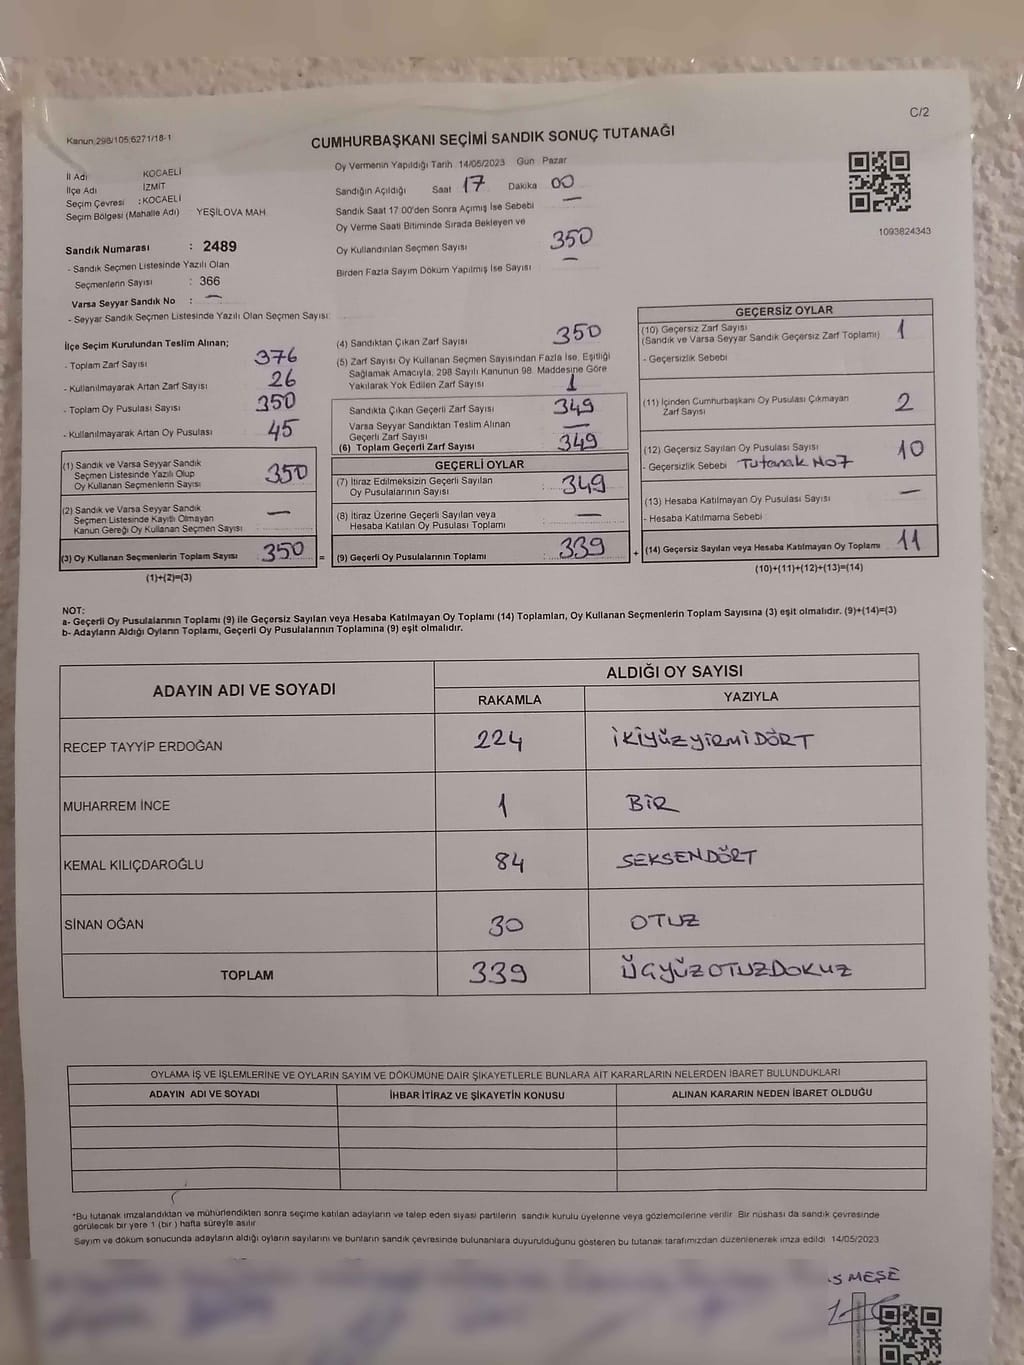 C/2
Kanun 298/105,6271/18-1
CUMHURBAŞKANI SEÇİMİ SANDIK SONUÇ TUTANAĞI
İl Adı KOCAELİ
İlçe Adı İZMİT
Seçim Çevresi : KOCAELİ
Seçim Bölgesi (Mahalle Adı) YEŞİLOVA MAH
Sandık Numarası : 2489
- Sandık Seçmen Listesinde Yazılı Olan
Seçmenlerin Sayısı : 366
Varsa Seyyar Sandık No : —
- Seyyar Sandık Seçmen Listesinde Yazılı Olan Seçmen Sayısı
Oy Vermenin Yapıldığı Tarih 14/05/2023 Gün Pazar
Sandığın Açıldığı Saat 17 Dakika 00
Sandık Saat 17 00'den Sonra Açımış İse Sebebi —
Oy Verme Saati Bitiminde Sırada Bekleyen ve
Oy Kullandırılan Seçmen Sayısı 350
Birden Fazla Sayım Döküm Yapılmış İse Sayısı —
1093824343
İlçe Seçim Kurulundan Teslim Alınan;
- Toplam Zarf Sayısı 376
- Kullanılmayarak Artan Zarf Sayısı 26
- Toplam Oy Pusulası Sayısı 350
- Kullanılmayarak Artan Oy Pusulası 45
(1) Sandık ve Varsa Seyyar Sandık
Seçmen Listesinde Yazılı Olup
Oy Kullanan Seçmenlerin Sayısı 350
(2) Sandık ve Varsa Seyyar Sandık
Seçmen Listesinde Kayıtlı Olmayan
Kanun Gereği Oy Kullanan Seçmen Sayısı —
(3) Oy Kullanan Seçmenlerin Toplam Sayısı 350
(1)+(2)=(3)
(4) Sandıktan Çıkan Zarf Sayısı 350
(5) Zarf Sayısı Oy Kullanan Seçmen Sayısından Fazla İse, Eşitliği
Sağlamak Amacıyla, 298 Sayılı Kanunun 98. Maddesine Göre
Yakılarak Yok Edilen Zarf Sayısı 1
Sandıkta Çıkan Geçerli Zarf Sayısı 349
Varsa Seyyar Sandıktan Teslim Alınan
Geçerli Zarf Sayısı —
(6) Toplam Geçerli Zarf Sayısı 349
GEÇERLİ OYLAR
(7) İtiraz Edilmeksizin Geçerli Sayılan
Oy Pusulalarının Sayısı : 349
(8) İtiraz Üzerine Geçerli Sayılan veya
Hesaba Katılan Oy Pusulası Toplamı : —
= (9) Geçerli Oy Pusulalarının Toplamı : 339
GEÇERSİZ OYLAR
(10) Geçersiz Zarf Sayısı
(Sandık ve Varsa Seyyar Sandık Geçersiz Zarf Toplamı) 1
- Geçersizlik Sebebi
(11) İçinden Cumhurbaşkanı Oy Pusulası Çıkmayan
Zarf Sayısı 2
(12) Geçersiz Sayılan Oy Pusulası Sayısı 10
- Geçersizlik Sebebi Tutanak No7
(13) Hesaba Katılmayan Oy Pusulası Sayısı —
- Hesaba Katılmama Sebebi
+ (14) Geçersiz Sayılan veya Hesaba Katılmayan Oy Toplamı 11
(10)+(11)+(12)+(13)=(14)
NOT:
a- Geçerli Oy Pusulalarının Toplamı (9) ile Geçersiz Sayılan veya Hesaba Katılmayan Oy Toplamı (14) Toplamları, Oy Kullanan Seçmenlerin Toplam Sayısına (3) eşit olmalıdır. (9)+(14)=(3)
b- Adayların Aldığı Oyların Toplamı, Geçerli Oy Pusulalarının Toplamına (9) eşit olmalıdır.
ADAYIN ADI VE SOYADI
ALDIĞI OY SAYISI
RAKAMLA YAZIYLA
RECEP TAYYİP ERDOĞAN 224 İKİYÜZYİRMİDÖRT
MUHARREM İNCE 1 BİR
KEMAL KILIÇDAROĞLU 84 SEKSENDÖRT
SİNAN OĞAN 30 OTUZ
TOPLAM 339 ÜÇYÜZOTUZDOKUZ
OYLAMA İŞ VE İŞLEMLERİNE VE OYLARIN SAYIM VE DÖKÜMÜNE DAİR ŞİKAYETLERLE BUNLARA AİT KARARLARIN NELERDEN İBARET BULUNDUKLARI
ADAYIN ADI VE SOYADI İHBAR İTİRAZ VE ŞİKAYETİN KONUSU ALINAN KARARIN NEDEN İBARET OLDUĞU
*Bu tutanak imzalandıktan ve mühürlendikten sonra seçime katılan adayların ve talep eden siyasi partilerin sandık kurulu üyelerine veya gözlemcilerine verilir Bir nüshası da sandık çevresinde
görülecek bir yere 1 (bir) hafta süreyle asılır
Sayım ve döküm sonucunda adayların aldığı oyların sayılarını ve bunların sandık çevresinde bulunanlara duyurulduğunu gösteren bu tutanak tarafımızdan düzenlenerek imza edildi 14/05/2023
Ş MEŞE